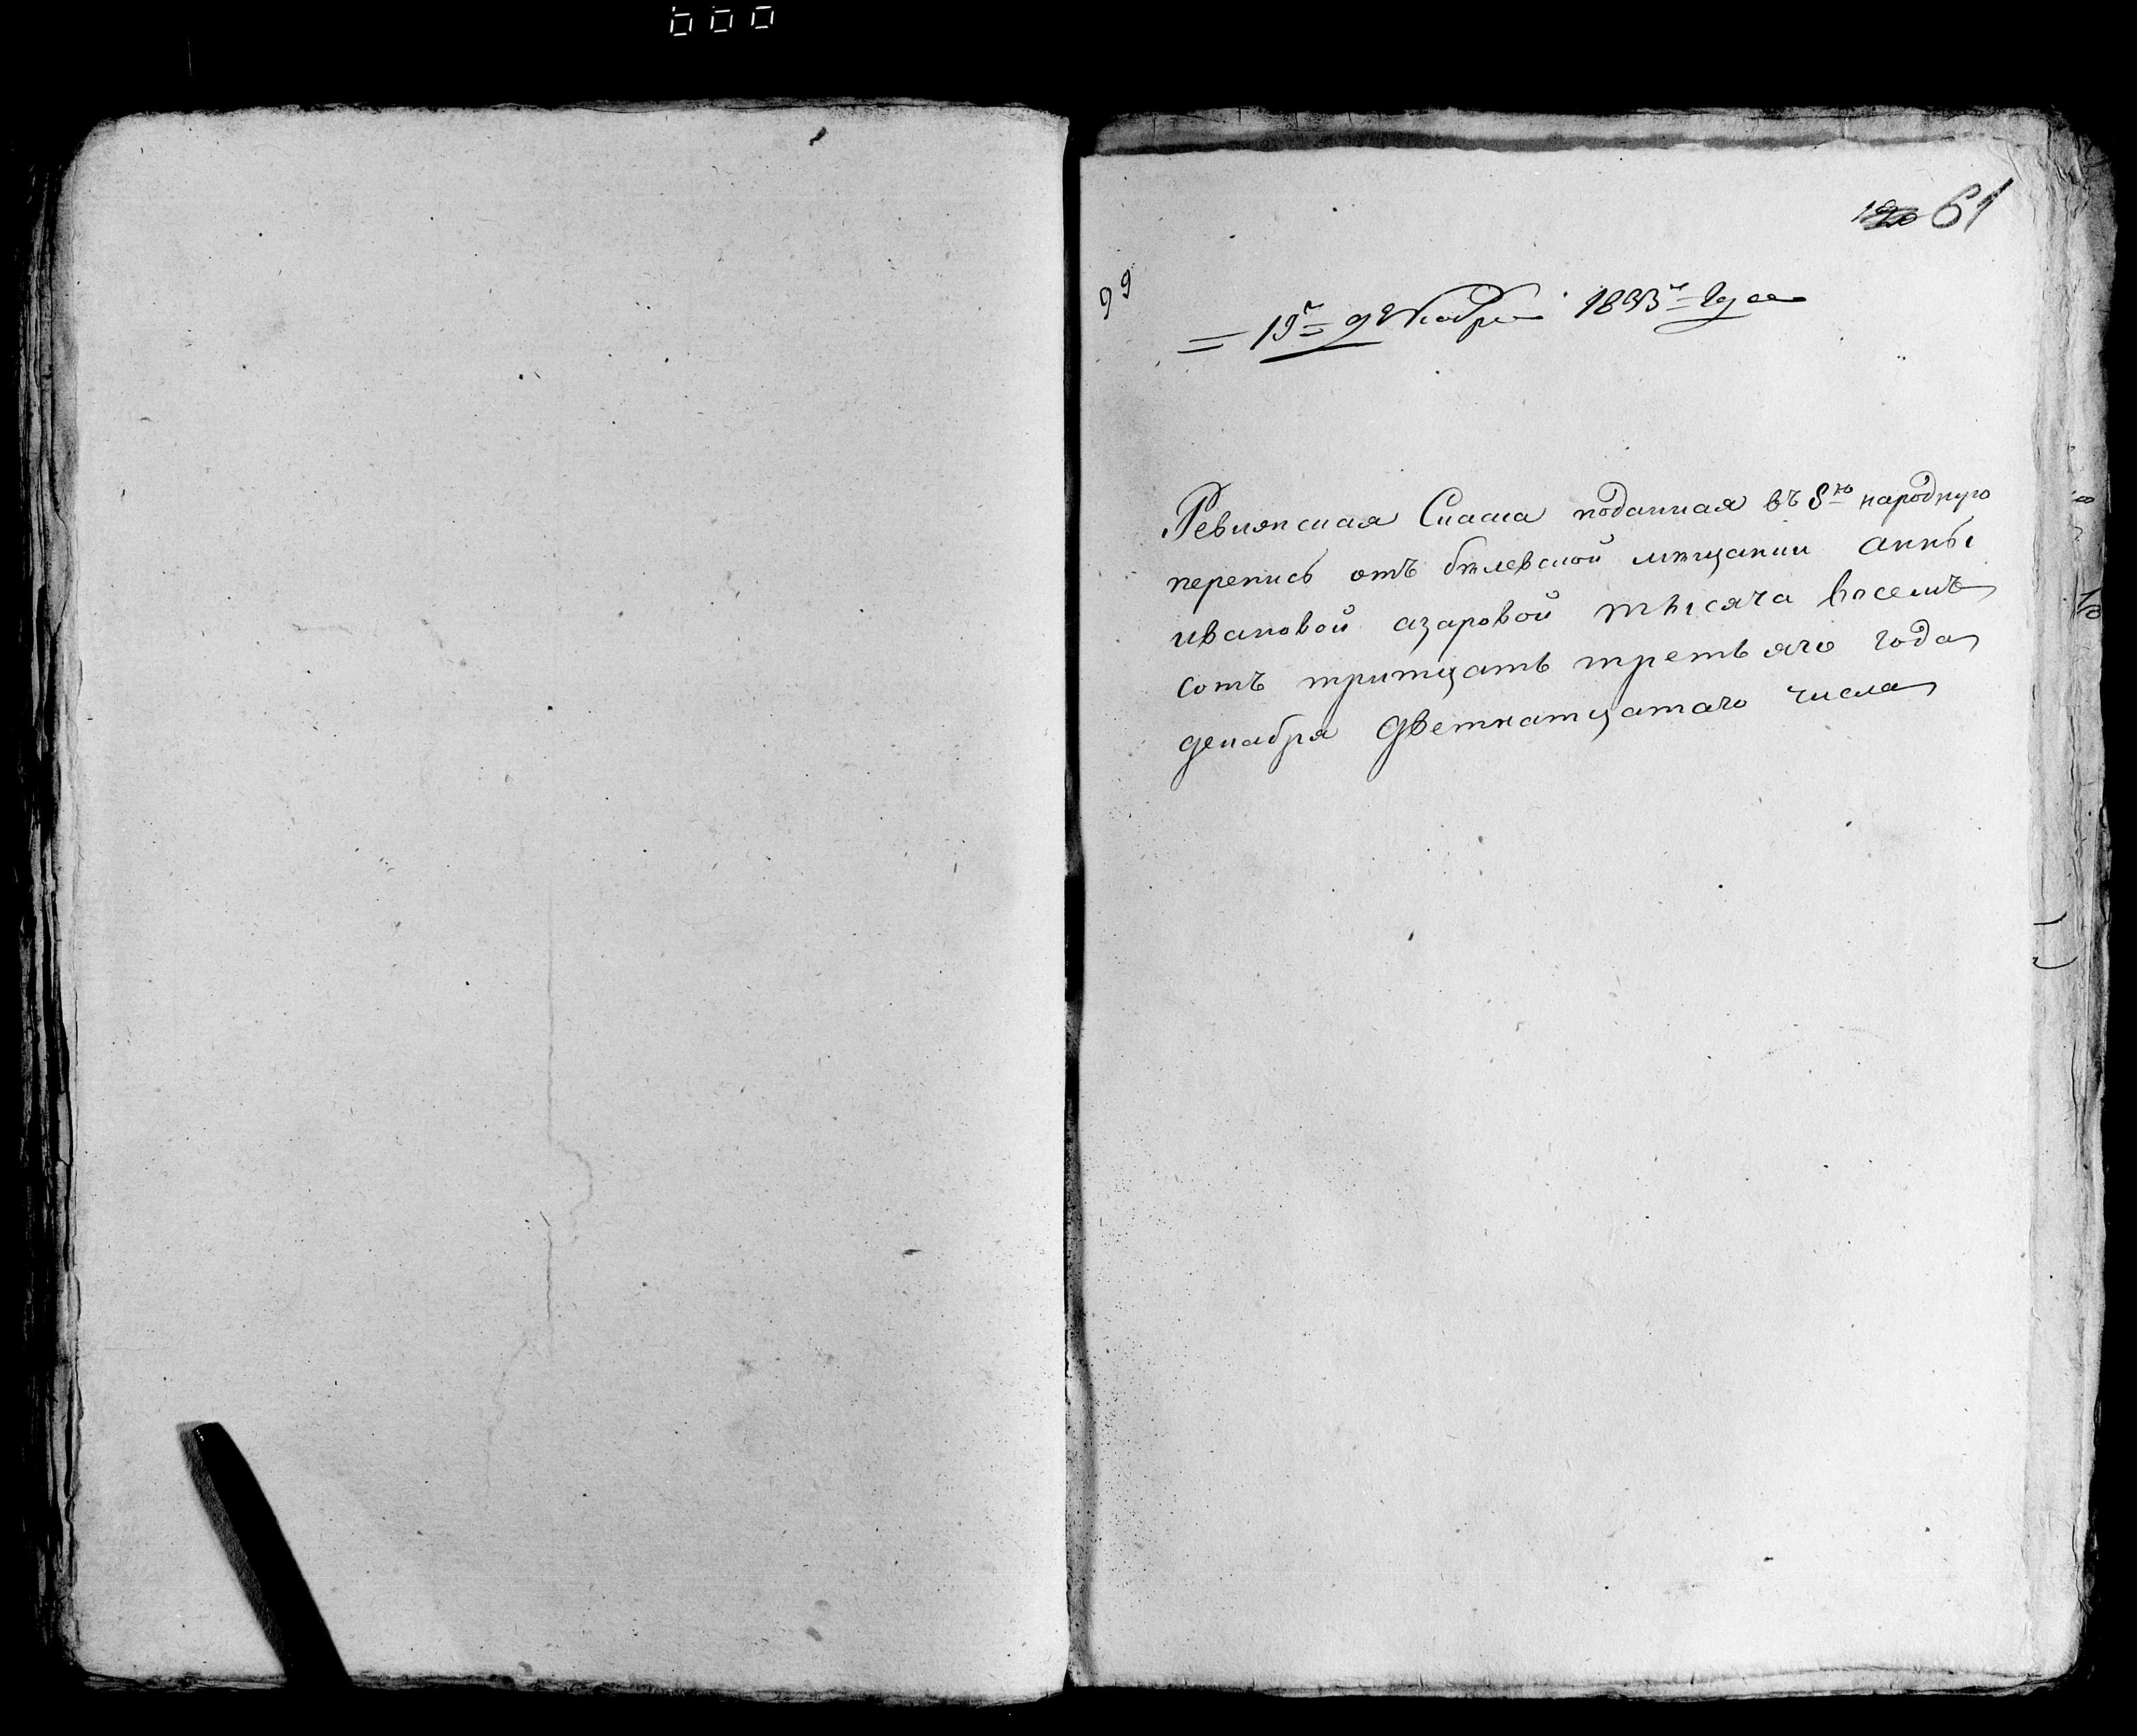 61
99
= 19го = Декабря 1833го = Года
Ревизская Скаска поданная въ 8ю народную
перепись отъ бѣлевской мѣщанки анны
ивановой азаровой тысяча восемъ
сотъ тритцать третьяго года
декабря Двѣтнатцатаго числа